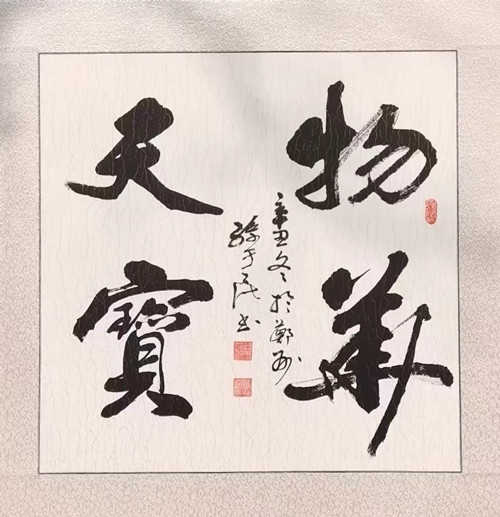 物華
天寶
辛丑冬於鄭州
孫民书